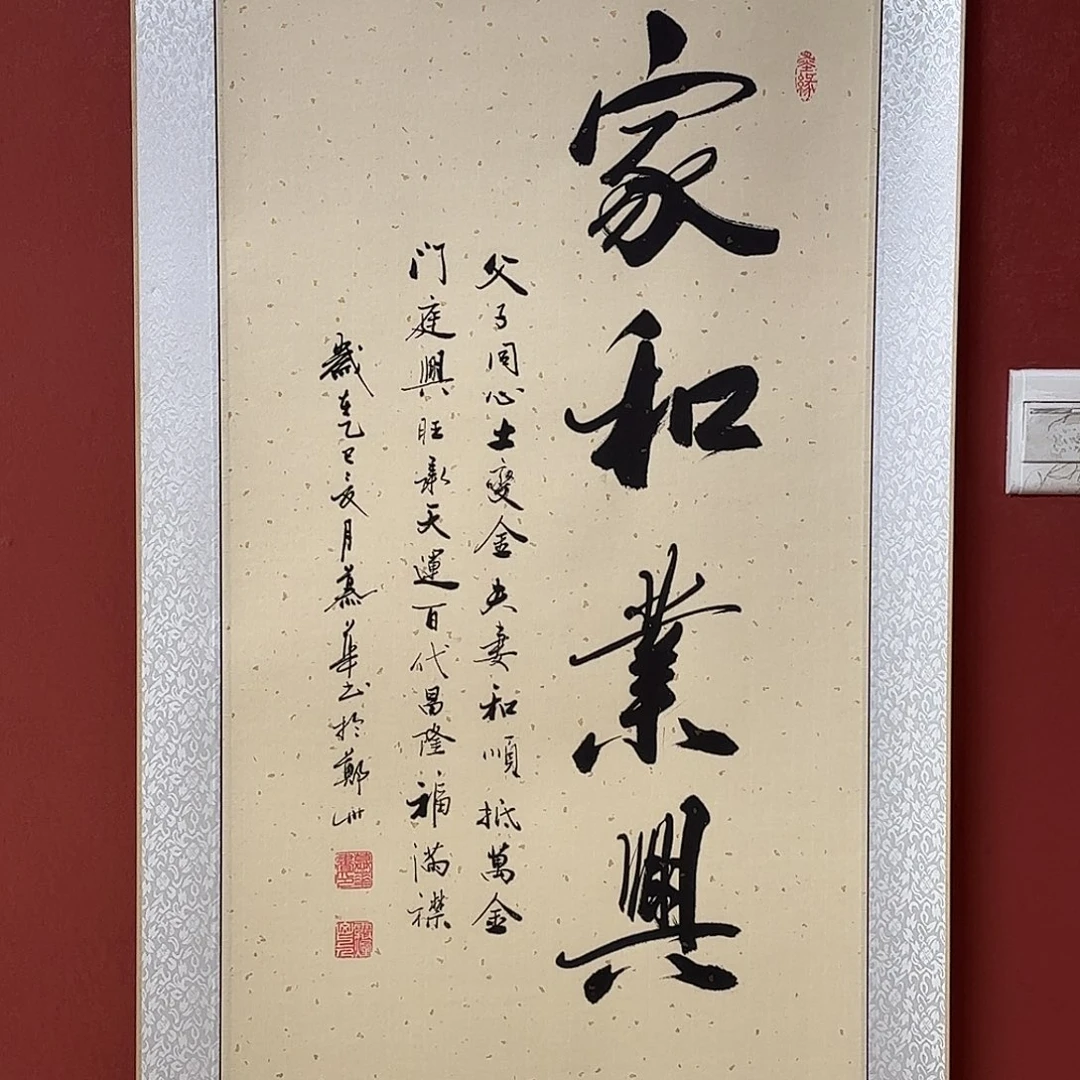 家和業興
父子同心土變金夫妻和順抵萬金
门庭興旺承天運百代昌隆福满襟
歲在乙巳亥月慕華书於鄭州
墨緣